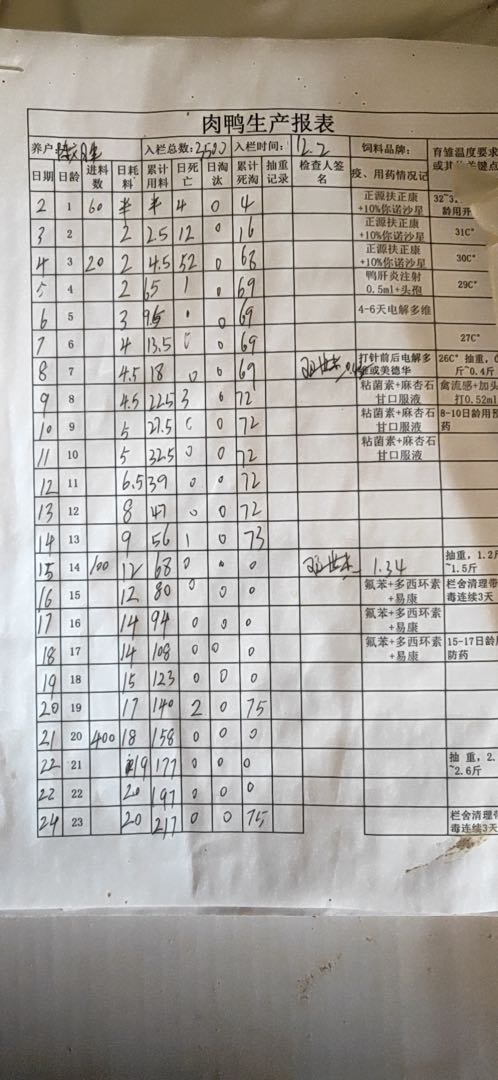 肉鸭生产报表
养户 入栏总数:2500 入栏时间: 12.2 饲料品牌: 育雏温度要求
日期 日龄 进料数 日耗料 累计用料 日死亡 日淘汰 累计死淘 抽重记录 检查人签名 疫、用药情况记
2 1 60 半 半 4 0 4 正源扶正康+10%你诺沙星
3 2 2 2.5 12 0 16 正源扶正康+10%你诺沙星 31C°
4 3 20 2 4.5 52 0 68 正源扶正康+10%你诺沙星 30C°
5 4 2 6.5 1 0 69 鸭肝炎注射0.5ml+头孢 29C°
6 5 3 9.5 0 69 4-6天电解多维
7 6 4 13.5 0 0 69 27C°
8 7 4.5 18 0 0 69 打针前后电解多维或美德华 26C° 抽重,0.斤~0.4斤
9 8 4.5 22.5 3 0 72 粘菌素+麻杏石甘口服液 禽流感+加头打0.52ml
10 9 5 27.5 0 0 72 粘菌素+麻杏石甘口服液 8-10日龄用预药
11 10 5 32.5 0 0 72 粘菌素+麻杏石甘口服液
12 11 6.5 39 0 0 72
13 12 8 47 0 0 72
14 13 9 56 1 0 73
15 14 100 12 68 0 0 0 1.34 抽重,1.2斤~1.5斤
16 15 12 80 0 0 0 氟苯+多西环素+易康 栏舍清理带毒连续3天
17 16 14 94 0 0 0 氟苯+多西环素+易康
18 17 14 108 0 0 0 氟苯+多西环素+易康 15-17日龄用防药
19 18 15 123 0 0 0
20 19 17 140 2 0 75
21 20 400 18 158 0 0 0
22 21 19 177 0 0 0 抽重,2.~2.6斤
22 22 20 197 0 0 0
24 23 20 217 0 0 75 栏舍清理带毒连续3天